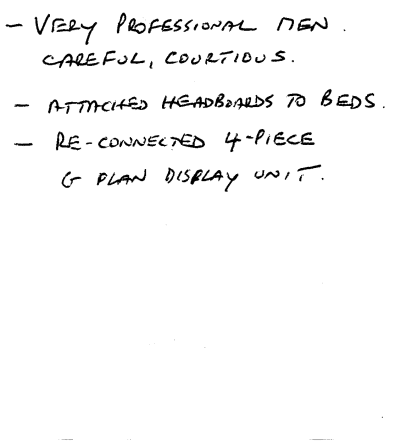 - VERY PROFESSIONAL MEN.
CAREFUL, COURTIOUS.
- ATTACHED HEADBOARDS TO BEDS.
- RE-CONNECTED 4-PIECE
G PLAN DISPLAY UNIT.